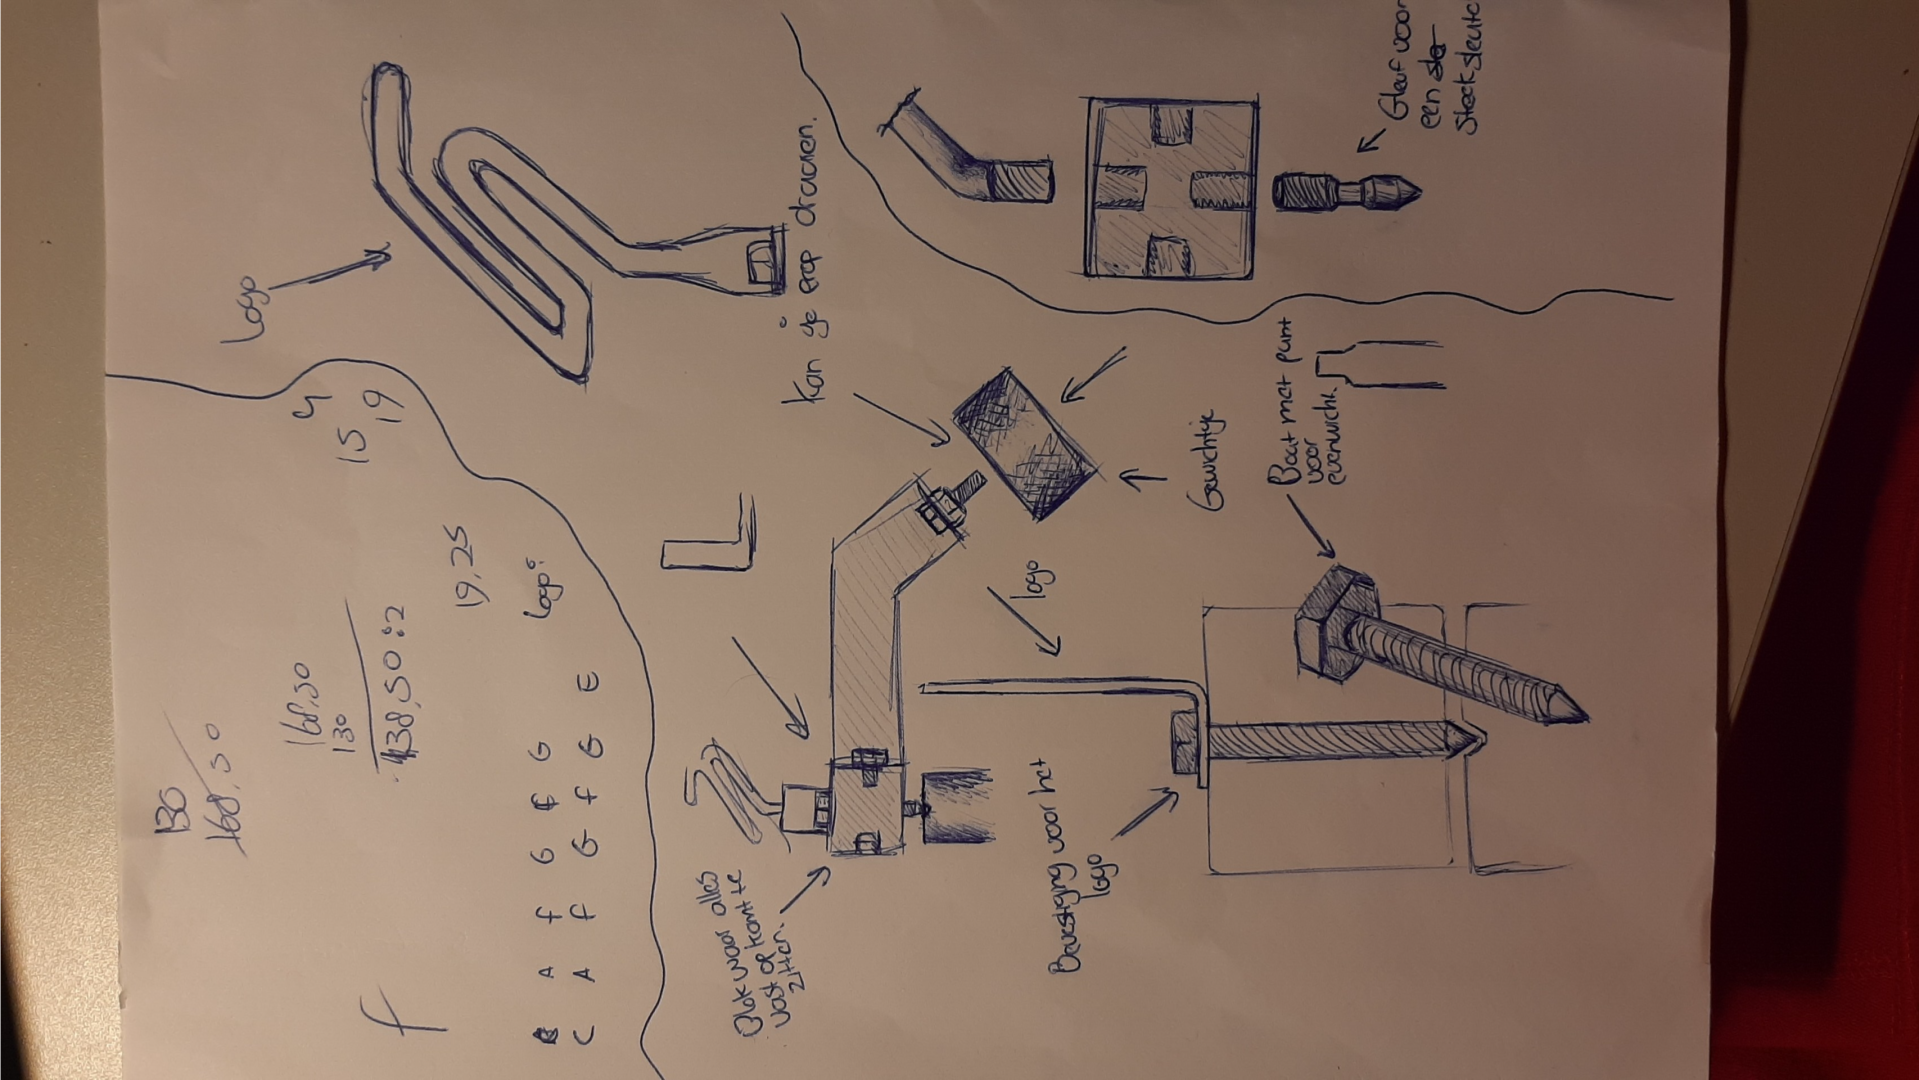 130
168,50
168,50
130
438,50:2
19,25
15
19
Logo:
A F G G
C A F G F G E
F
Logo
Kan je erop draaien.
Blok waar alles
vast op komt te
zitten.
Gewichtje
logo
Bevestiging voor het
logo
Bout met punt
voor
evenwicht.
Gleuf voor
een
Steeksleutel